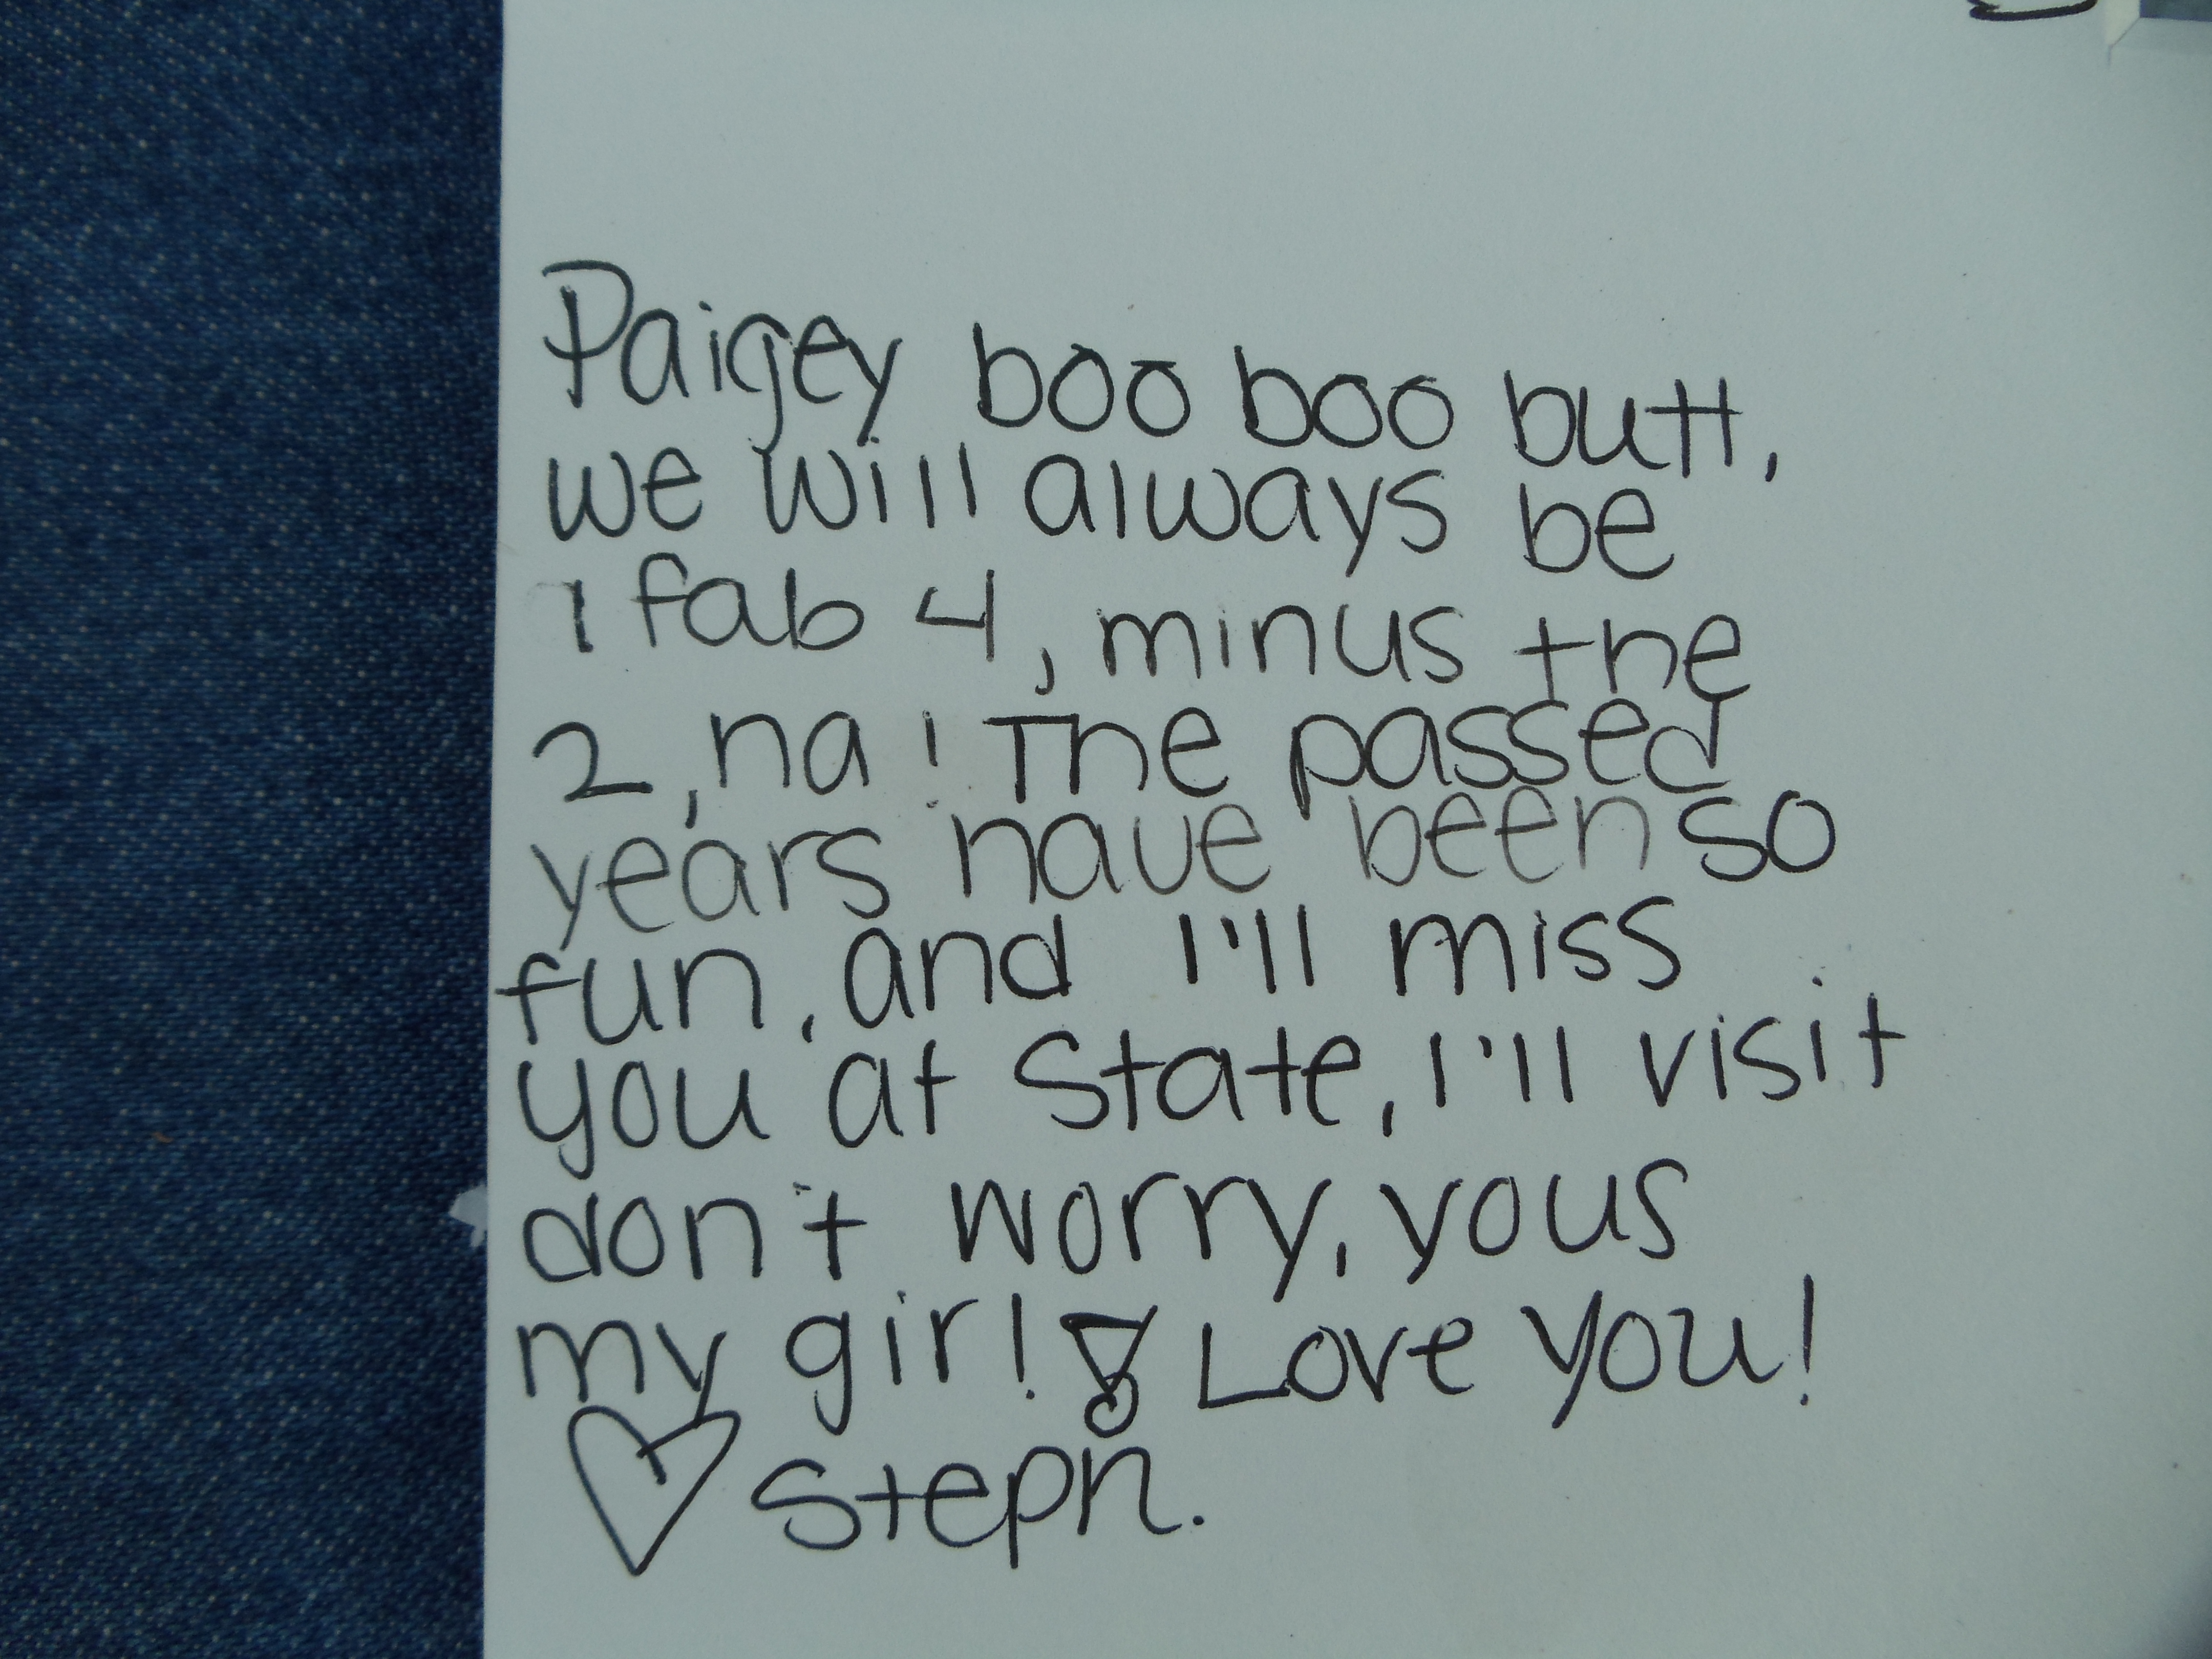 Paigey boo boo butt,
we will always be
1 fab 4, minus the
2, ha! The passed
years have been so
fun, and I'll miss
you at State, I'll visit
don't worry, yous
my girl! Love you!
♡ Steph.